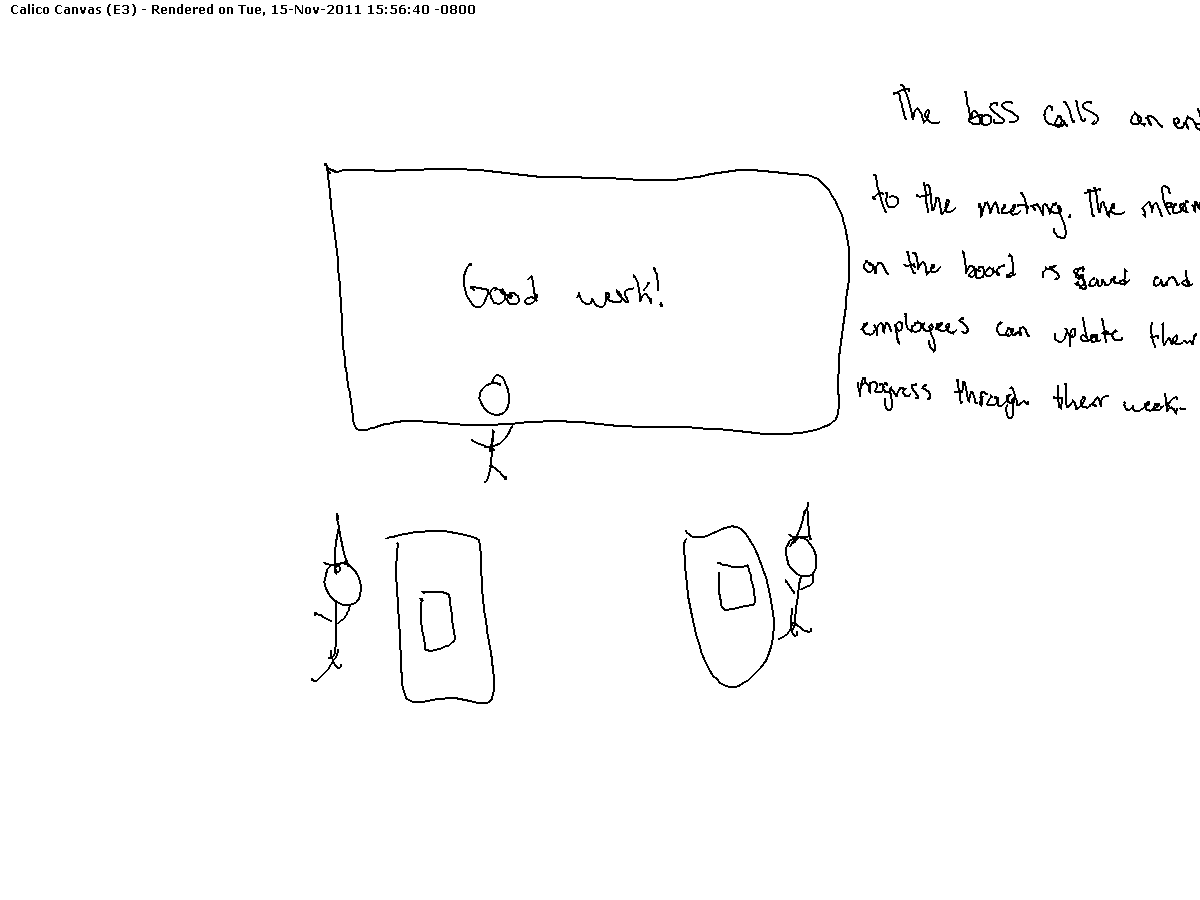 Calico Canvas (E3) - Rendered on Tue, 15-Nov-2011 15:56:40 -0800
The boss calls an end
to the meeting. The inform
on the board is saved and
employees can update their
progress through their week.
Good work!